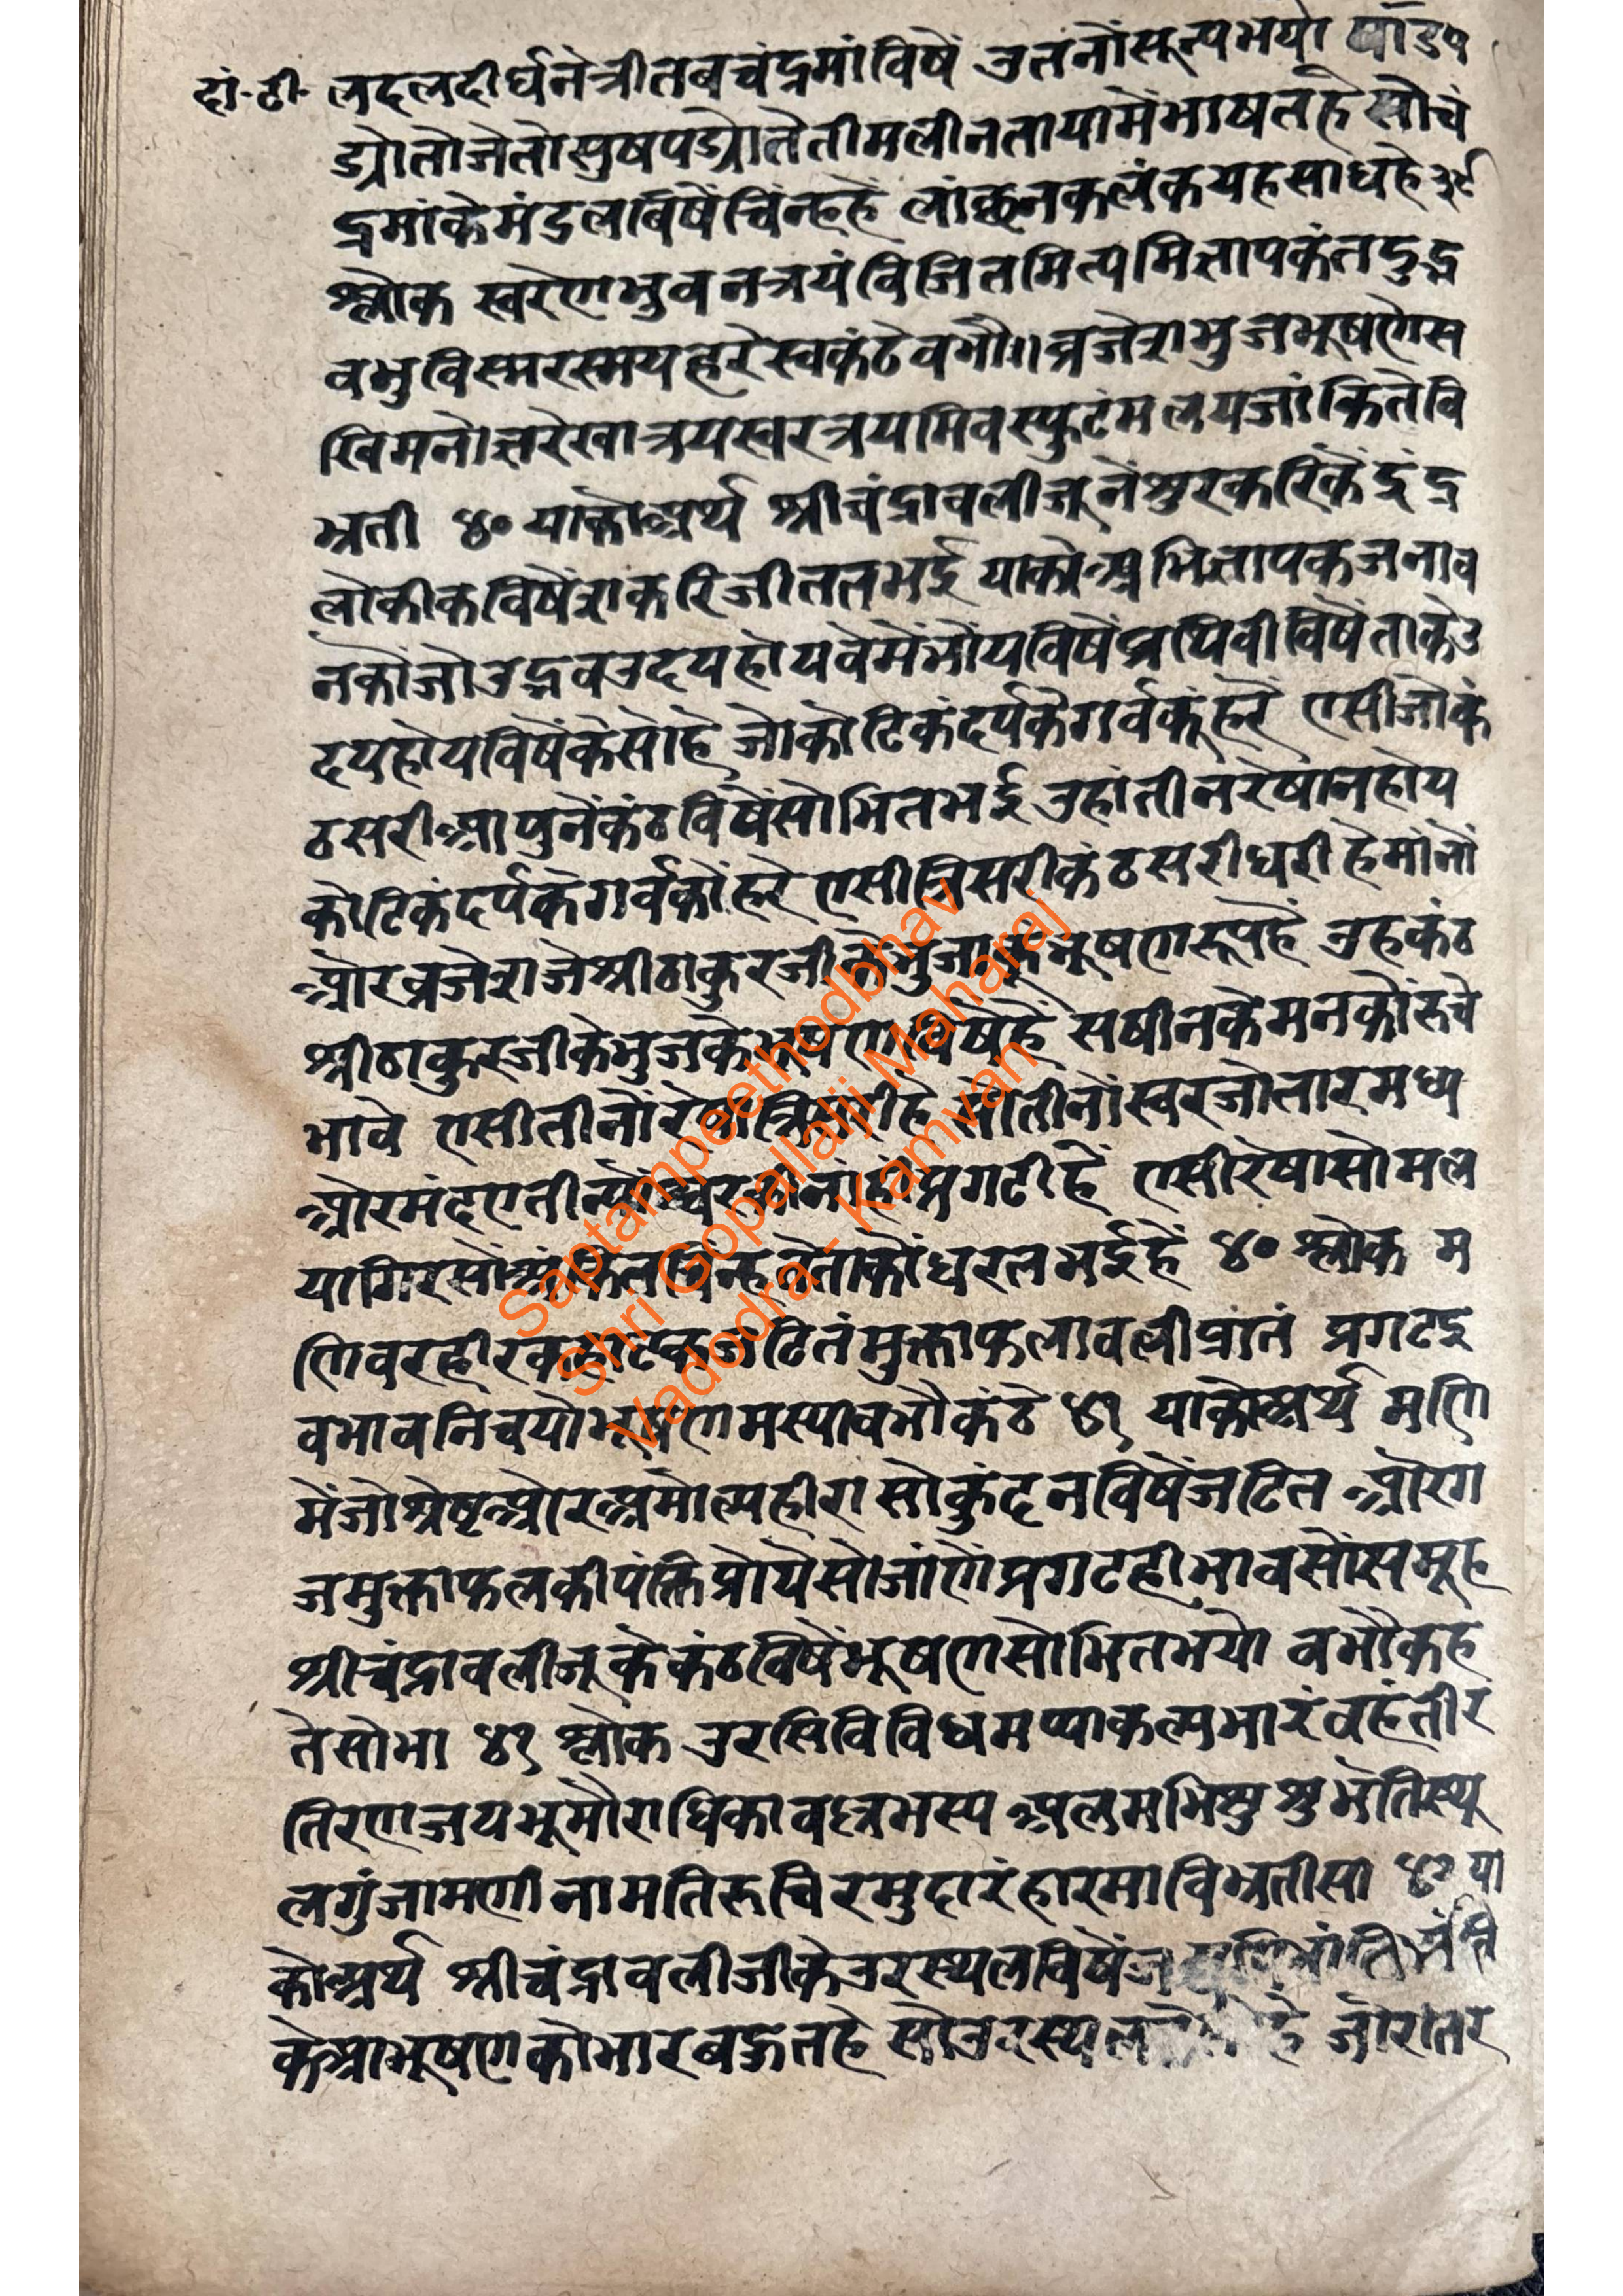 दां·टी· लदलदीर्घनेत्रीतबचंद्रमांविषें उतनोंसूल्पभयो
ड्योतोजेतोसुषपड्योतेतीमलीनतायामेंभाषतहे सोचं
द्रमांकेमंडलविषेंचिंन्हहें लांछनकलंकयहसाधहे३९
श्लोक स्वरेणभुवनत्रयंविजितमित्यमिज्ञापकंतदुद्भ
वभुविस्मरस्मयहरेस्वकंठेवभौ॥व्रजेशभुजभूषणेस
खिमनोज्ञरेखात्रयस्वरत्रयमिवस्फुटंमलयजांकितेवि
भ्रती ४० याकोअर्थ श्रीचंद्रावलीजूनेंशुरकरिकेंइंद्र
लोकीकविषेंशकरिजीततभई याकोअभिज्ञापकजनाव
नकोंजोउद्भवउदयहोयवेमेंभोंयविषेंप्रथिवीविषेंताकेउ
दयहोयविषेंकेसोहे जोकोटिकंदर्पकेगर्वकूंहरें एसीजोकं
ठसरीआपुनेंकंठविषेंसोभितभई उहांतीनरेषानहोय
कोटिकंदर्पकेगर्वकोंहरे एसीत्रिसरीकंठसरीधरीहेमांनों
ओरव्रजेशजेश्रीठाकुरजीकेभुजाकेभूषणरूपहें उहकंठ
श्रीठाकुरजीकेभुजकेभूषणविषेहें सषीनकेमनकोंरुचे
भावे एसीतीनोंरेषात्रिसरीहे सोतीनोंस्वरजोतारमध्य
ओरमंदएतीन्योंस्वरतीनांहीप्रगटीहें एसीरेषासोमल
यागिरसोंअंकितचिंन्हतेताकोंधरतभईहें ४० श्लोक म
णिवरहीरकहाटकजटितंमुक्ताफलावलीप्रांतं प्रगटइ
वभावनिचयोभूषणमस्यावभौकंठे ४१ याकोअर्थ मणि
मेंजोश्रेष्टओरअमोल्यहीरा सोकुंदनविषेंजटित ओरग
जमुक्ताफलकीपंक्तिप्रोयेसोजांणेंप्रगटहीभावसोंसमूह
श्रीचंद्रावलीजूकेकंठविषेंभूषणसोभितभयो वभौकह
तेसोभा ४१ श्लोक उरसिविविधमप्याकल्पभारंवहंतीर
तिरणजयभूमौराधिकावल्लभस्य अलमभिशुशुभेतिस्थू
लगुंजामणीनामतिरुचिरमुदारंहारमाविभ्रतीसा ४२ या
कोअर्थ श्रीचंद्रावलीजीकेउरस्थलविषें
केआभूषणकोभारबहुतहे सोउरस्थल जोरातर